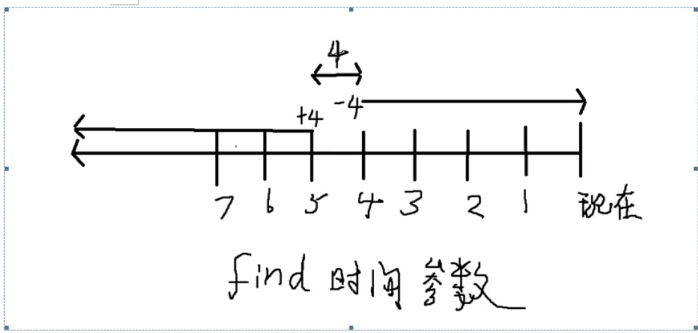 4
+4 -4
7 6 5 4 3 2 1 现在
find 时间参数